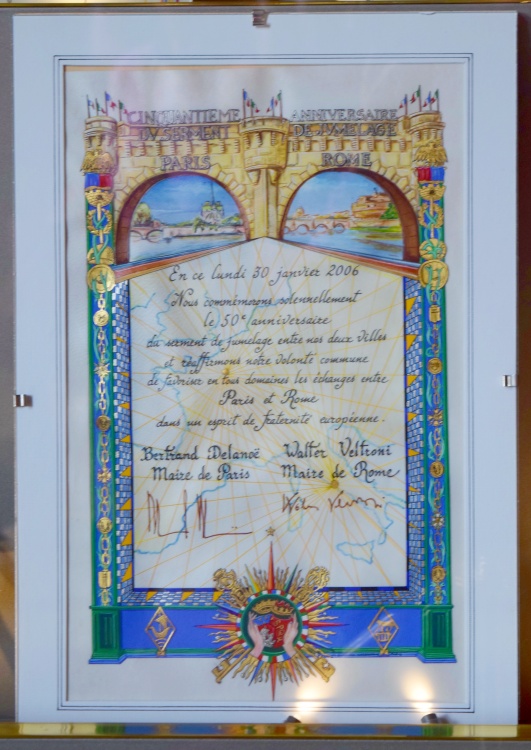 CINQUANTIEME ANNIVERSAIRE
DU SERMENT DE JUMELAGE
PARIS ROME
En ce lundi 30 janvier 2006
Nous commémorons solennellement
le 50e anniversaire
du serment de jumelage entre nos deux villes
et réaffirmons notre volonté commune
de favoriser en tous domaines les échanges entre
Paris et Rome
dans un esprit de fraternité européenne.
Bertrand Delanoë Walter Veltroni
Maire de Paris Maire de Rome